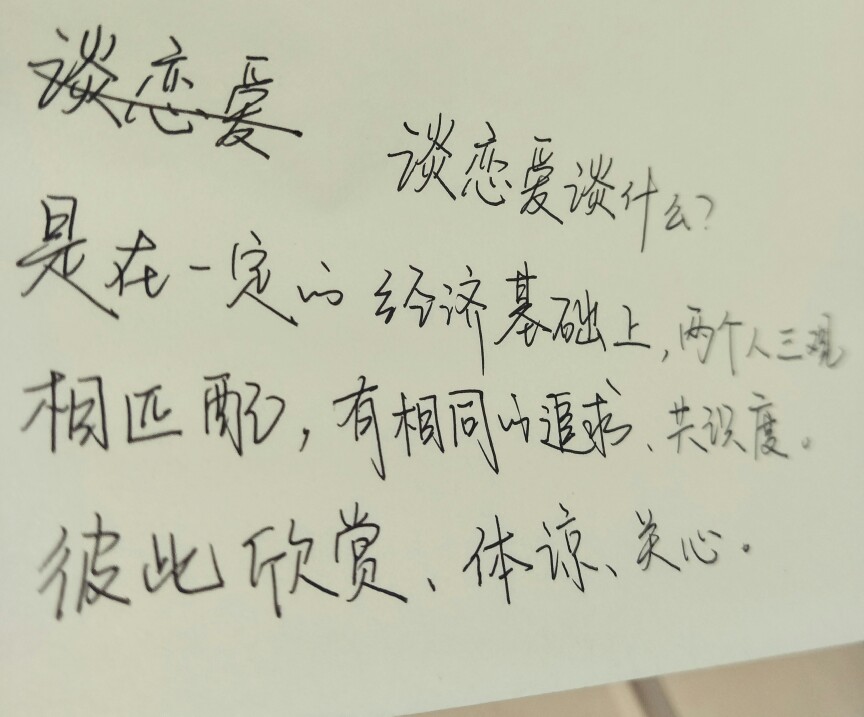 谈恋爱
谈恋爱谈什么?
是在一定的经济基础上,两个人三观
相匹配,有相同的追求、共识度。
彼此欣赏、体谅、关心。